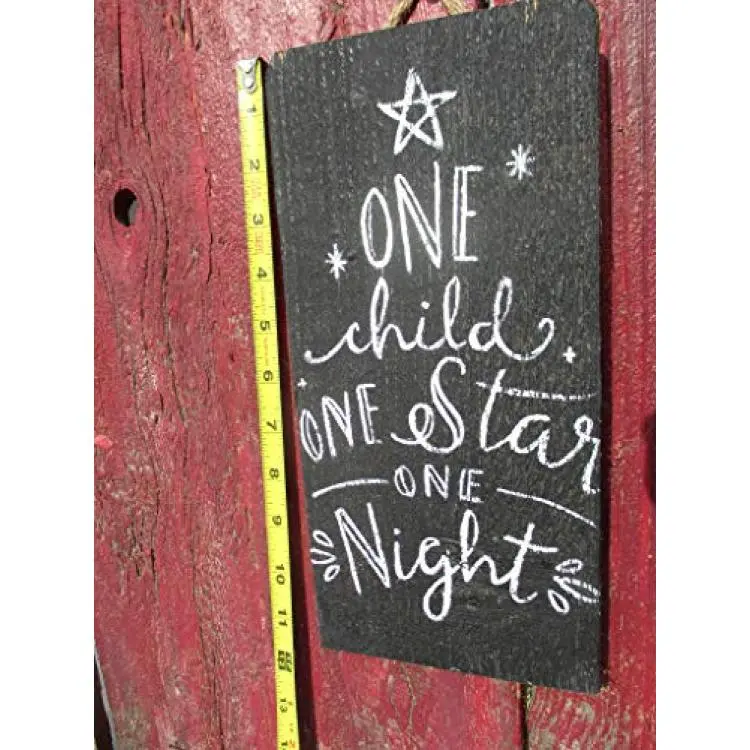 ONE
child
ONE Star
ONE
Night
1
2
3
4
5
6
7
8
9
10
11
13